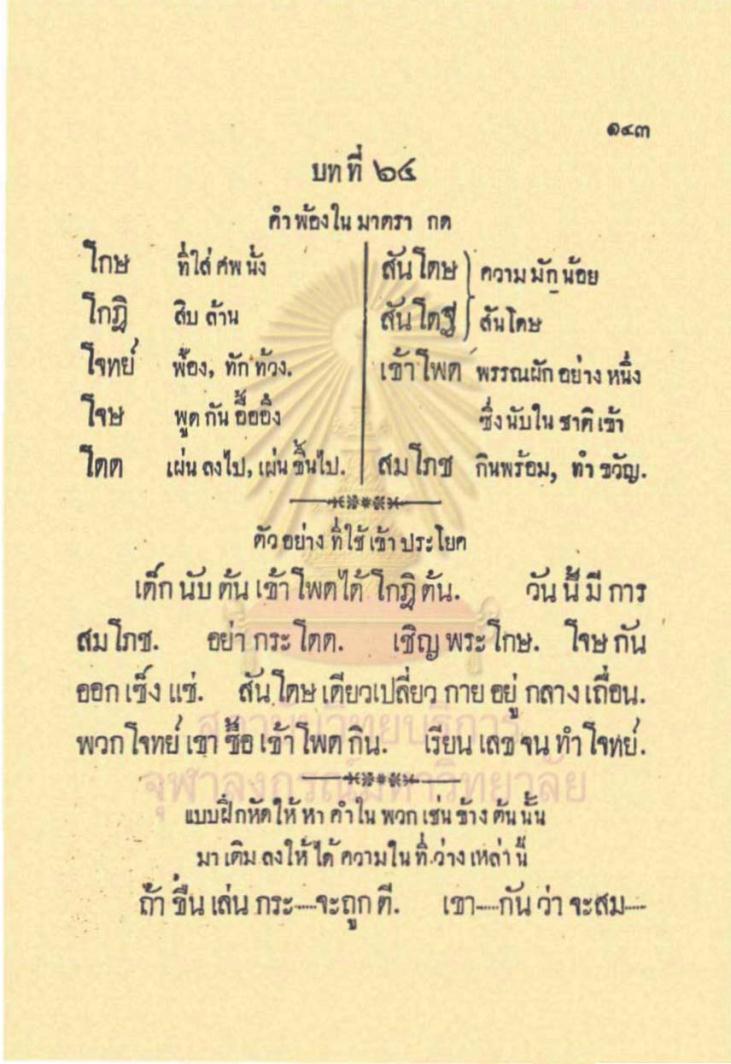 ๑๔๓
บทที่ ๖๔
คำพ้องใน มาตรา กด
โกษ ที่ใส่ ศพ นั่ง
โกฏิ สิบ ล้าน
โจทย์ ฟ้อง, ทัก ท้วง.
โจษ พูด กัน อื้ออึง
โดด เผ่น ลงไป, เผ่น ขึ้นไป.
สันโดษ ความ มัก น้อย
สันโดฐี สันโดษ
เข้าโพด พรรณผัก อย่าง หนึ่ง
ซึ่งนับใน ชาติ เข้า
สมโภช กินพร้อม, ทำ ขวัญ.
ตัว อย่าง ที่ใช้ เข้า ประโยค
เด็ก นับ ต้น เข้า โพดได้ โกฏิ ต้น. วัน นี้ มี การ
สมโภช. อย่า กระ โดด. เชิญ พระ โกษ. โจษ กัน
ออก เซ็ง แซ่. สันโดษ เดียวเปลี่ยว กาย อยู่ กลาง เถื่อน.
พวก โจทย์ เขา ซื้อ เข้า โพด กิน. เรียน เลข จน ทำ โจทย์.
สถาบันวิทยบริการ
จุฬาลงกรณ์มหาวิทยาลัย
แบบฝึกหัดให้ หา คำใน พวก เช่น ข้าง ต้น นั้น
มา เติม ลงให้ ได้ ความใน ที่ ว่าง เหล่า นี้
ถ้า ขืน เล่น กระ-----จะถูก ตี. เขา-----กัน ว่า จะสม-----